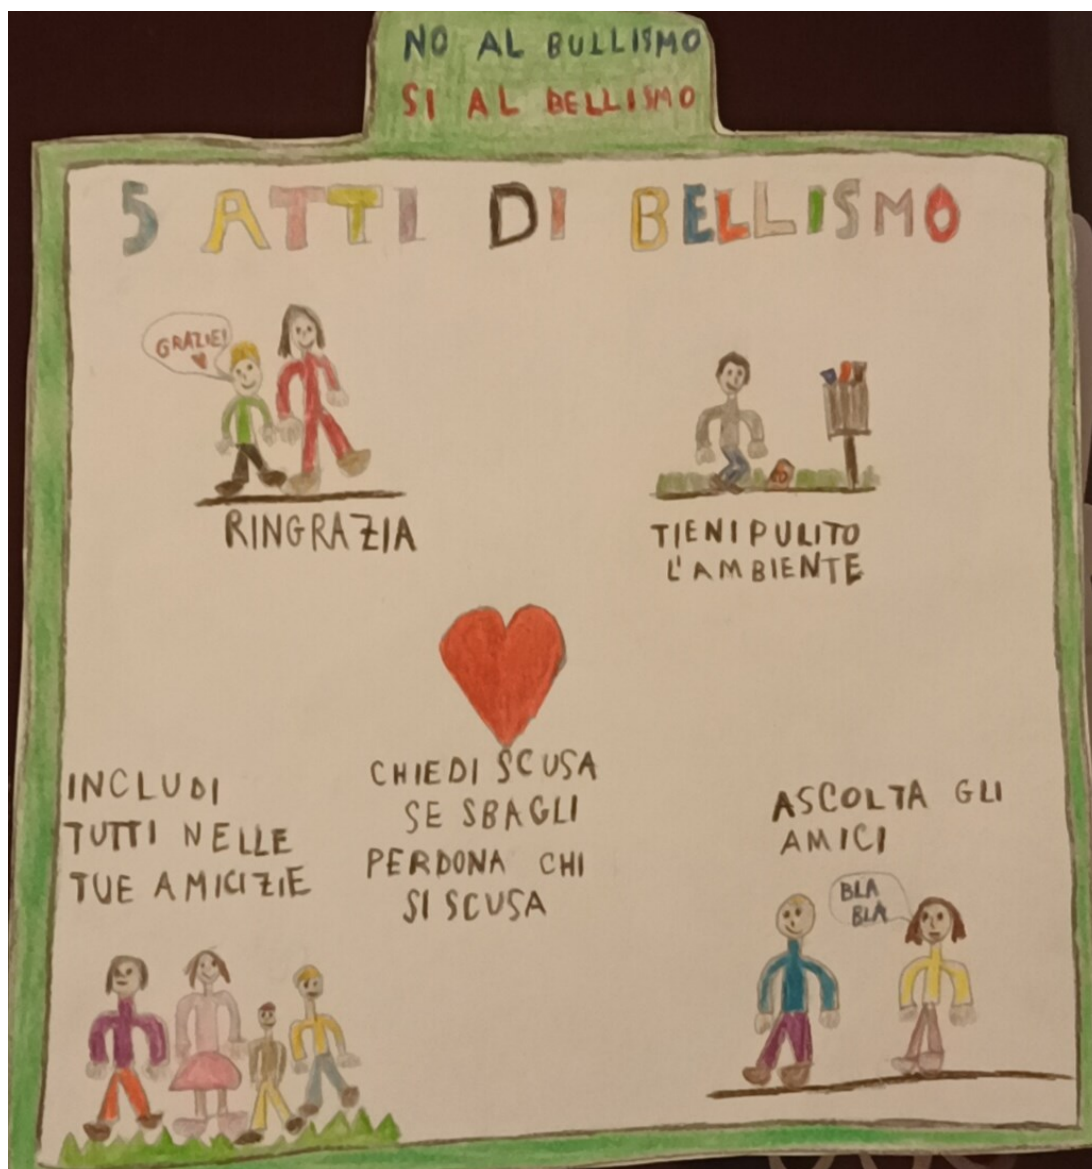 NO AL BULLISMO
SI AL BELLISMO
5 ATTI DI BELLISMO
GRAZIE!
RINGRAZIA
TIENI PULITO
L'AMBIENTE
INCLUDI
TUTTI NELLE
TUE AMICIZIE
CHIEDI SCUSA
SE SBAGLI
PERDONA CHI
SI SCUSA
ASCOLTA GLI
AMICI
BLA
BLA